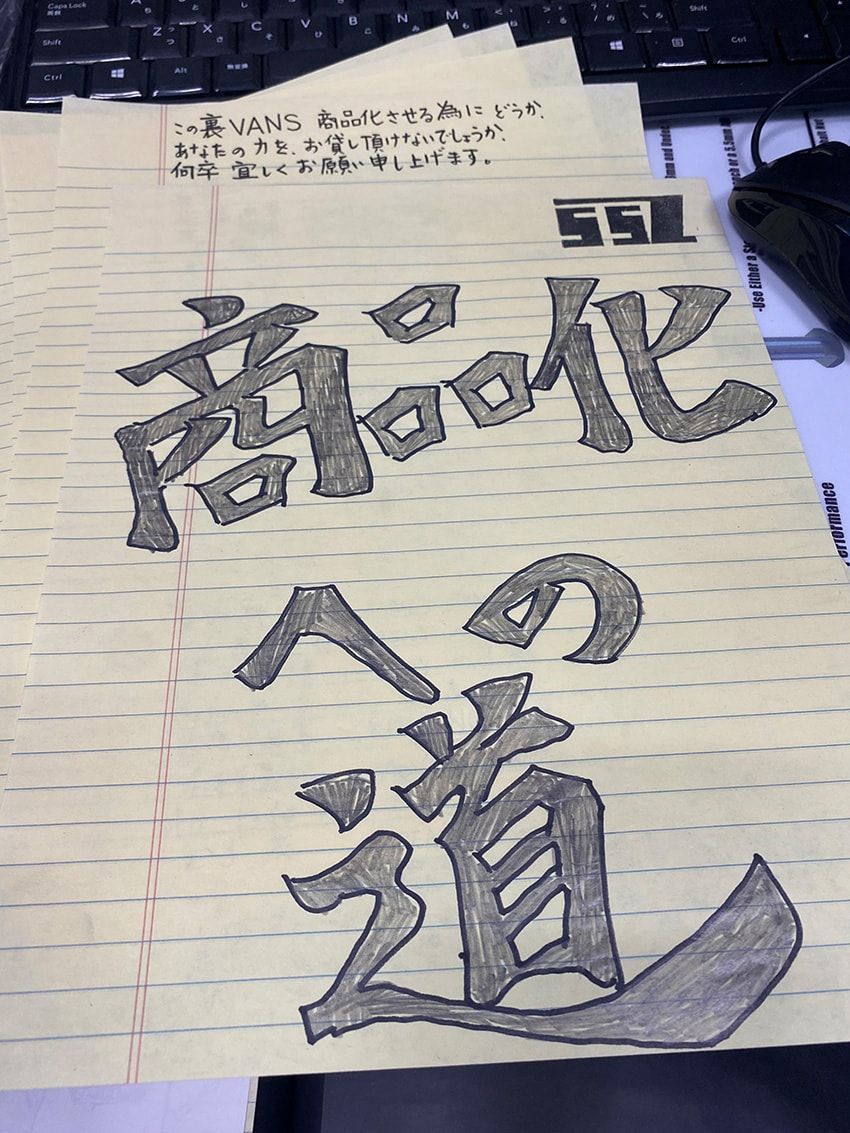 Caps Lock
Shift
Z X C V B N M
Shift
Ctrl
Alt
無変換
Ctrl
この裏VANS 商品化させる為に どうか、
あなたの力を、お貸し頂けないでしょうか、
何卒 宜しくお願い申し上げます。
SSZ
商品化
への
道
-Use Either a
erformance